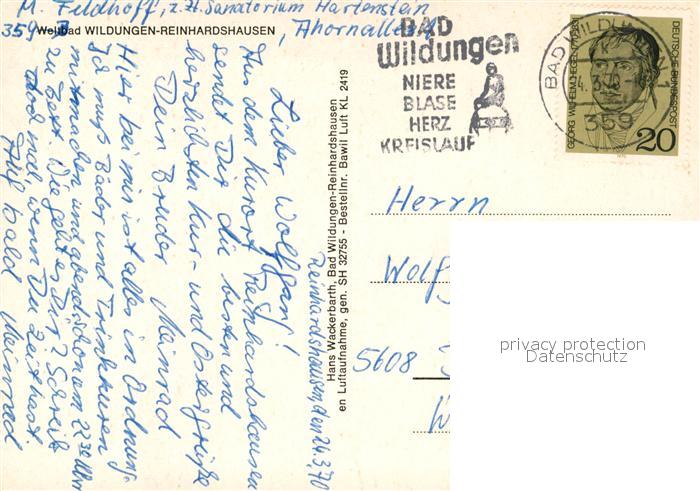 M. Feldhoff, z. Zt. Sanatorium Hartenstein
359 Ahornallee
Weltbad WILDUNGEN-REINHARDSHAUSEN
Reinhardshausen, den 24.3.70
Lieber Wolfgang!
Aus dem Kurort Reinhardshausen
sendet Dir die besten und
herzlichsten Kur- und Ostergrüße
Dein Bruder Meinrad
Hier bei mir ist alles in Ordnung.
Ja muß Bäder und Trinkkuren
mitmachen und abends schon um 22³⁰ Uhr
zu Bett. Wie geht es Dir? Schreib
doch mal, wenn Du Zeit hast.
Auf bald Meinrad
Hans Wackerbarth, Bad Wildungen-Reinhardshausen
en Luftaufnahme, gen. SH 32755 - Bestellnr. Bawil Luft KL 2419
BAD
Wildungen
NIERE
BLASE
HERZ
KREISLAUF
BAD WILDUNGEN 1
359
GEORG WILHELM FR. HEGEL 1770-1831
DEUTSCHE BUNDESPOST
20
Herrn
Wolfg
5608
W
privacy protection
Datenschutz